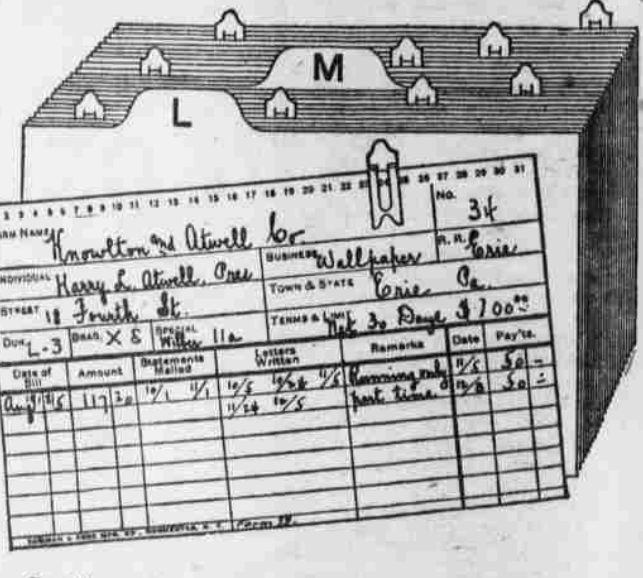 M
L
2 3 4 5 6 7 8 9 10 11 12 13 14 15 16 17 18 19 20 21 22 23 25 26 27 28 29 30 31
FIRM NAME Knowlton and Atwell Co. NO. 34
INDIVIDUAL Harry L. Atwell, Pres BUSINESS Wallpaper R. R. Erie
STREET 18 Fourth St. TOWN & STATE Erie Pa.
DUN. L-3 BRAD. X 8 SPECIAL 11a TERMS & LIMIT Net 30 Days $700.00
Date of Bill Amount Statements Mailed Letters Written Remarks Date Pay'ts.
Aug 117 20 10/1 11/1 10/5 10/26 11/5 Running only 11/5 50 -
11/24 12/5 part time 12/8 50 -